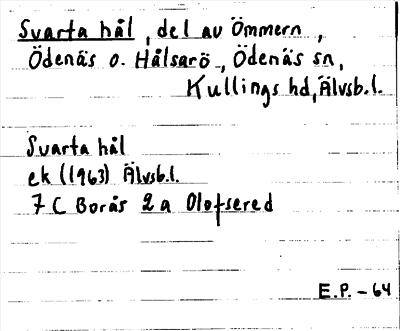 Svarta hål, del av Ömmern,
Ödenäs o. Hålsarö, Ödenäs sn,
Kullings hd, Älvsb.l.
Svarta hål
ek (1963) Älvsb.l.
7 C Borås 2 a Olofsered
E.P. - 64